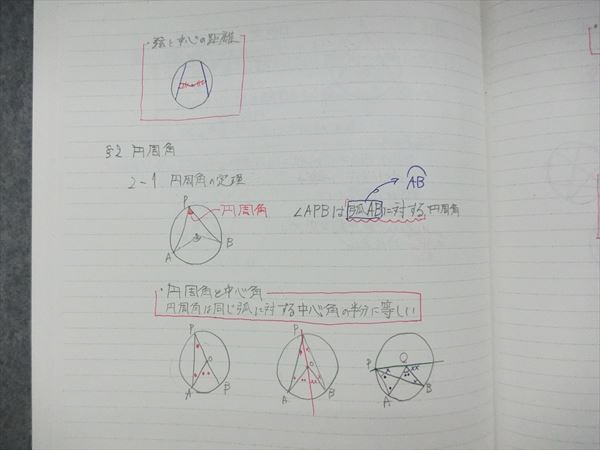 ・弦と中心の距離
§2 円周角
2-1 円周角の定理
P
円周角
A
B
∠APBは弧ABに対する円周角
AB
・円周角と中心角
円周角は同じ弧に対する中心角の半分に等しい
P
O
A
B
P
O
A
B
P
O
A
B